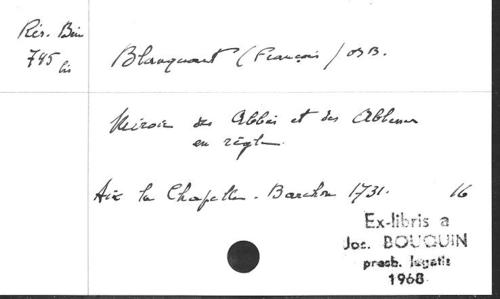 Rés. Bin
745 bis
Blanquart (François) OSB.
Miroir des Abbés et des Abbesses
en règle.
Aix la Chapelle. Barchon 1731. 16
Ex-libris a
Jos. BOUQUIN
presb. legatis
1968